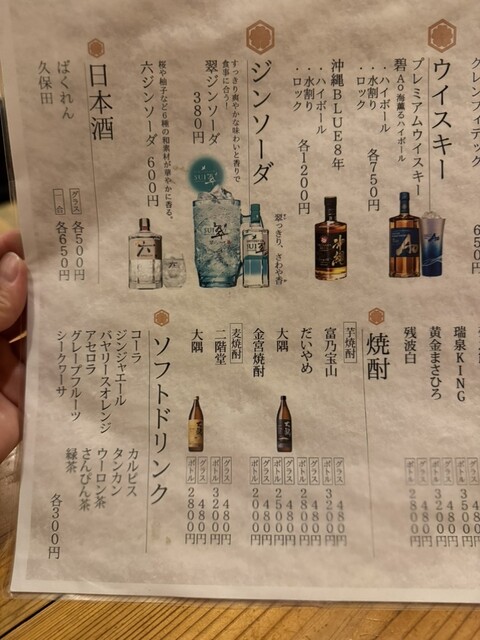 グレンフィディック
650円
ウイスキー
プレミアムウイスキー
碧Ao 海薫るハイボール
・ハイボール
・水割り
・ロック
各750円
沖縄BLUE 8年
・ハイボール
・水割り
・ロック
各1200円
ジンソーダ
すっきり爽やかな味わいと香りで
食事に合う!
翠ジンソーダ
380円
翠っきり、さわや香
桜や柚子など6種の和素材が華やかに香る。
六ジンソーダ 600円
日本酒
ばくれん
久保田
グラス 各500円
一合 各650円
瑞泉KING
黄金まさひろ
残波白
グラス 480円
ボトル 3500円
グラス 480円
ボトル 3200円
グラス 480円
ボトル 2800円
焼酎
芋焼酎
富乃宝山
グラス 480円
ボトル 3200円
だいやめ
グラス 480円
ボトル 2800円
大隅
グラス 480円
ボトル 2500円
金宮焼酎
グラス 480円
ボトル 2000円
麦焼酎
二階堂
グラス 480円
ボトル 3200円
大隅
グラス 480円
ボトル 2800円
ソフトドリンク
コーラ
ジンジャエール
バヤリースオレンジ
アセロラ
グレープフルーツ
シークワーサ
カルピス
タンカン
ウーロン茶
さんぴん茶
緑茶
各300円